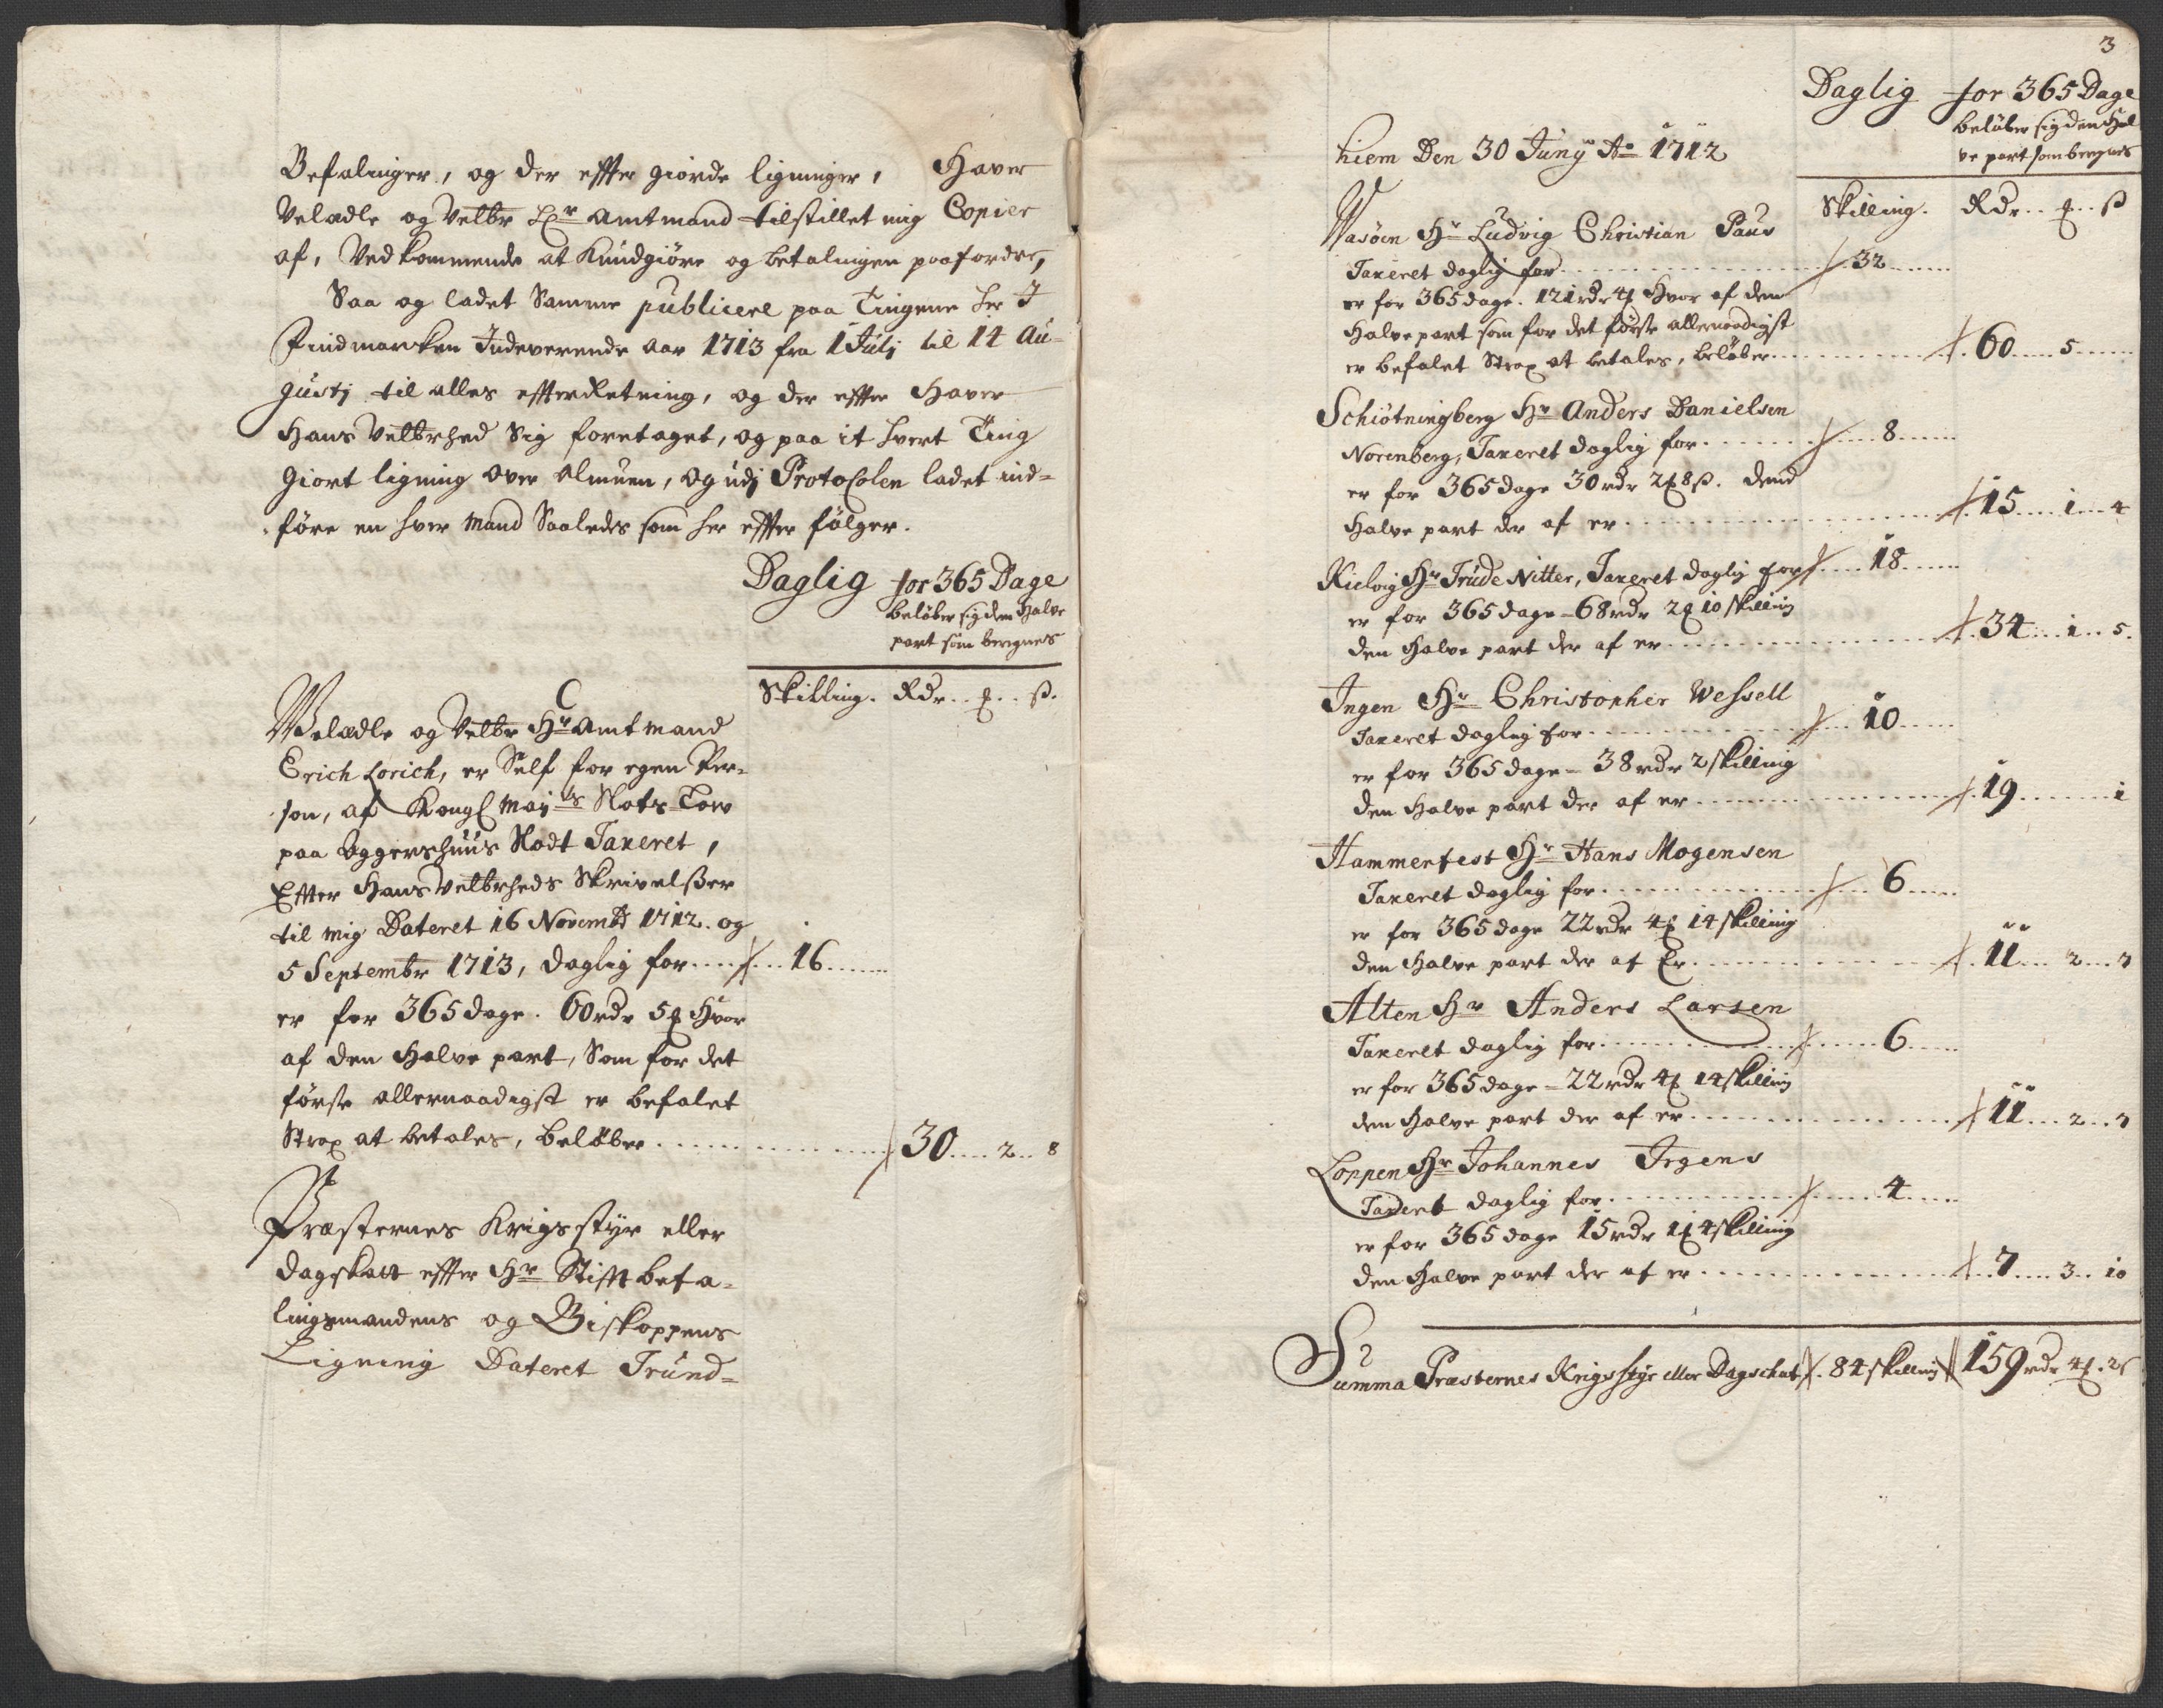 Befalinger, og der effter giorde ligninger, Haver
Velædle og Velbr Hr Amtmand tilstillet mig Copier
af, Vedkommende at Kundgiøre og betalingen paafordre,
Saa og ladet Samme publicere paa Tingene her I
Findmarken Indeværende Aar 1713 fra 1 Julj til 14 Au-
gustj til alles effterRetning, og der effter Haver
Hans Velbrhed Sig foretaget, og paa it hvert Ting
Giort ligning over Almuen, og udj Protocolen ladet ind-
føre en hver Mand Saaledes som her effter følger.
Daglig for 365 Dage
beløber sig den Halve
part som beregnes
Skilling. Rdr. . ꝑ. . ß.
C
Welædle og Velbr Hr Amtmand
Erich Lorich, er Self for egen Per-
son, af Kongl May:ts Slots Low
paa Aggershuus Slodt Taxeret,
Effter Hans Velbrheds Skrivelßer
til mig Dateret 16 Novembr 1712. og
5 Septembr 1713, daglig for .... 16 ....
er for 365 dage. 60 rdr 5 ꝑ Hvor
af den Halve part, Som for det
første allernaadigst er befalet
Strax at betales, beløber ........ 30 .... 2 .. 8
Præsternes Krigsstyr eller
dagskatt effter Hr Stifftbefa-
lingsmandens og Biskoppens
Ligning Dateret Trund-
3
Daglig for 365 Dage
beløber sig den Hal
ve part som beregnes
hiem Den 30 Junij Ao 1712
Skilling. Rdr. . ꝑ. . ß
Wasøen Hr Ludvig Christian Paus
Taxeret daglig for ........ 32 ....
er for 365 dage. 121 rdr 4 ꝑ Hvor af den
Halve part som for det første allernaadigst
er befalet Strax at betales, beløber ........ 60 .... 5 ....
Schiøtningberg Hr Anders Danielsen
Norenberg, Taxeret daglig for ........ 8 ....
er for 365 dage 30 rdr 2 ꝑ 8 ß. dend
Halve part der af er ........ 15 .... 1 ... 4
Kielvig Hr Trude Nitter, Taxeret daglig for .... 18 ....
er for 365 dage - 68 rdr 2 ꝑ 10 skilling
den Halve part der af er ........ 34 .... 1 .. 5.
Ingen Hr Christopher Wessell
Taxeret daglig for ........ 10 ....
er for 365 dage - 38 rdr 2 skilling
den Halve part der af er ........ 19 ........ 1
Hammerfest Hr Hans Mogensen
Taxeret daglig for ........ 6 ....
er for 365 dage 22 rdr 4 ꝑ 14 skilling
den Halve part der af Er ........ 11 .... 2 ... 7
Alten Hr Anders Larsen
Taxeret daglig for ........ 6 ....
er for 365 dage - 22 rdr 4 ꝑ 14 skilling
den Halve part der af er ........ 11 .... 2 .. 7
Loppen Hr Johannes Irgens
Taxeret daglig for ........ 4 ....
er for 365 dage 15 rdr 1 ꝑ 4 skilling
den Halve part der af er ........ 7 .... 3 .. 10
Summa Præsternes Krigsstyr eller Dagschat . 84 skilling 159 rdr 4 ꝑ . 2 ß